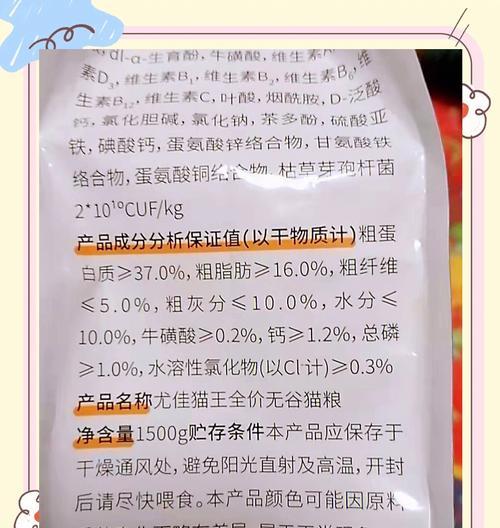 dl-α-生育酚，牛磺酸，维生素A，
素D₃，维生素B₁，维生素B₂，维生素B₆，维
生素B₁₂，维生素C，叶酸，烟酰胺，D-泛酸
钙，氯化胆碱，氯化钠，茶多酚，硫酸亚
铁，碘酸钙，蛋氨酸锌络合物，甘氨酸铁
络合物，蛋氨酸铜络合物，枯草芽孢杆菌
2*10¹⁰CUF/kg
产品成分分析保证值(以干物质计)粗蛋
白质≥37.0%，粗脂肪≥16.0%，粗纤维
≤5.0%，粗灰分≤10.0%，水分≤
10.0%，牛磺酸≥0.2%，钙≥1.2%，总磷
≥1.0%，水溶性氯化物(以Cl⁻计)≥0.3%
产品名称尤佳猫王全价无谷猫粮
净含量1500g贮存条件本产品应保存于
干燥通风处，避免阳光直射及高温，开封
后请尽快喂食。本产品颜色可能因原料